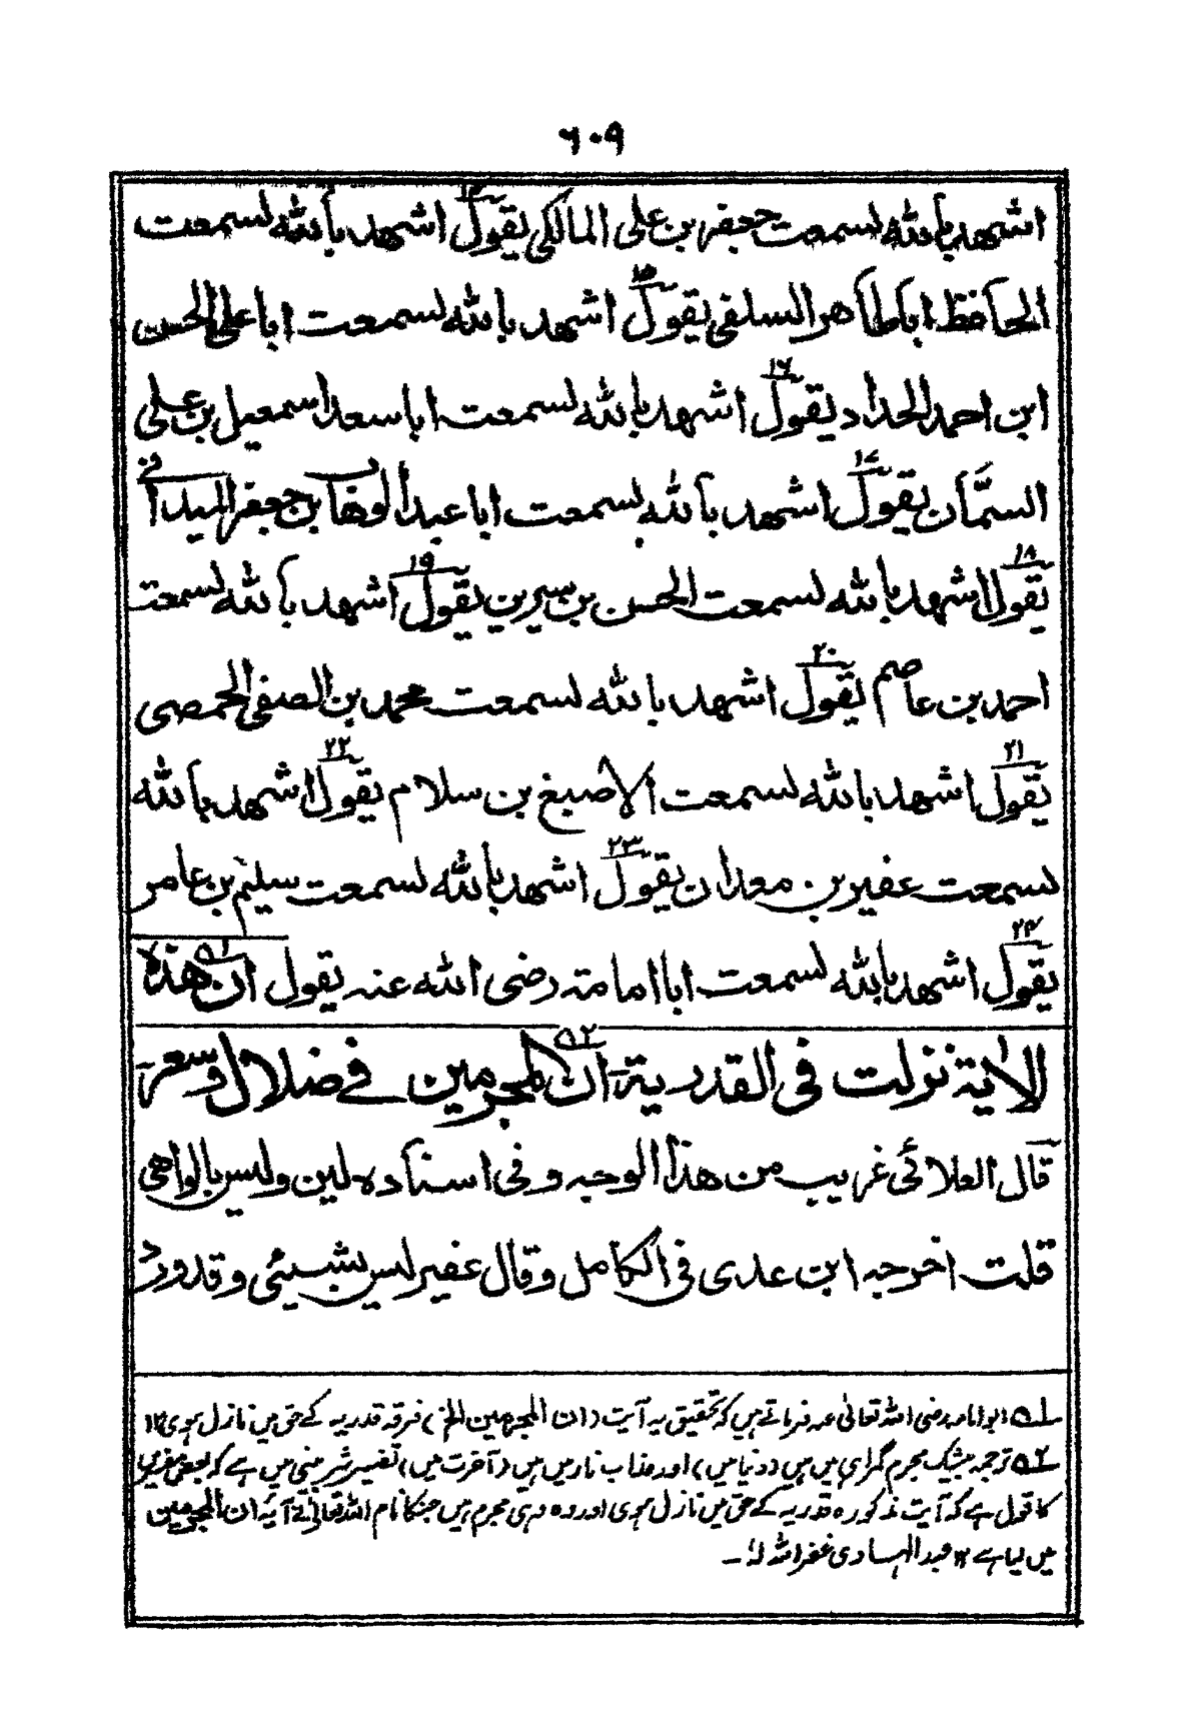 ٦٠٩
اشهد بالله لسمعت جعفر بن علی المالکی یقول ۱۴ اشهد بالله لسمعت
الحافظ اباطاهر السلفی یقول ۱۵ اشهد بالله لسمعت ابا علی الحسن
ابن احمد الحداد یقول ۱۶ اشهد بالله لسمعت ابا سعد اسمعیل بن علی
السمّان یقول ۱۷ اشهد بالله لسمعت ابا عبد الوهاب بن جعفر المیدانی
یقول ۱۸ اشهد بالله لسمعت الحسن بن سیرین یقول ۱۹ اشهد بالله لسمعت
احمد بن عاصم یقول ۲۰ اشهد بالله لسمعت محمد بن الصفی الحمصی
یقول ۲۱ اشهد بالله لسمعت الاصبغ بن سلام یقول ۲۲ اشهد بالله
لسمعت عفیر بن معدان یقول ۲۳ اشهد بالله لسمعت سلیم بن عامر
یقول ۲۴ اشهد بالله لسمعت ابا امامة رضی الله عنه یقول ان ۵۱ هذه
الاٰیة نزلت فی القدریة ان ۵۲ المجرمین فی ضلال وسعر
قال العلائی غریب من هذا الوجه وفی اسناده لین ولیس بالواهی
قلت اخرجه ابن عدی فی الکامل وقال عفیر لیس بشیئ وقد ورد
۵۱ ابوامامہ رضی اللہ تعالیٰ عنہ فرماتے ہیں کہ تحقیق یہ آیت (ان المجرمین الخ) فرقہ قدریہ کے حق میں نازل ہوی ۱۲
۵۲ ترجمہ بیشک مجرم گمراہی میں ہیں (دنیا میں) اور عذاب نار میں ہیں (آخرت میں) تفسیر شربینی میں ہے کہ بعض مفسرین
کا قول ہے کہ آیت مذکورہ قدریہ کے حق میں نازل ہوی اور وہ وہی مجرم ہیں جنکا نام اللہ تعالیٰ نے آیۂ ان المجرمین
میں لیا ہے ۱۲ عبد الہادی غفر اللہ لہٗ ۔